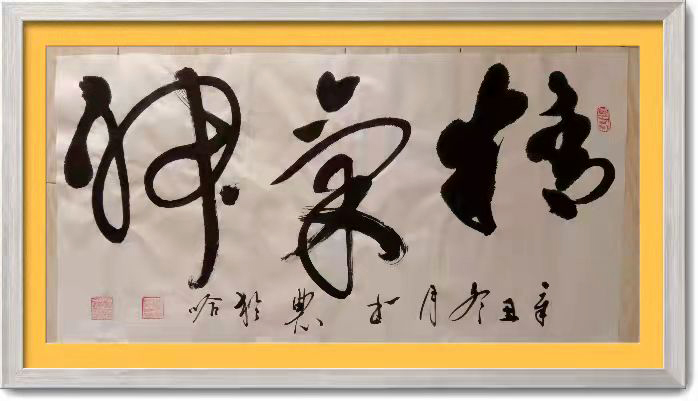 精氣神
辛丑冬月 於哈